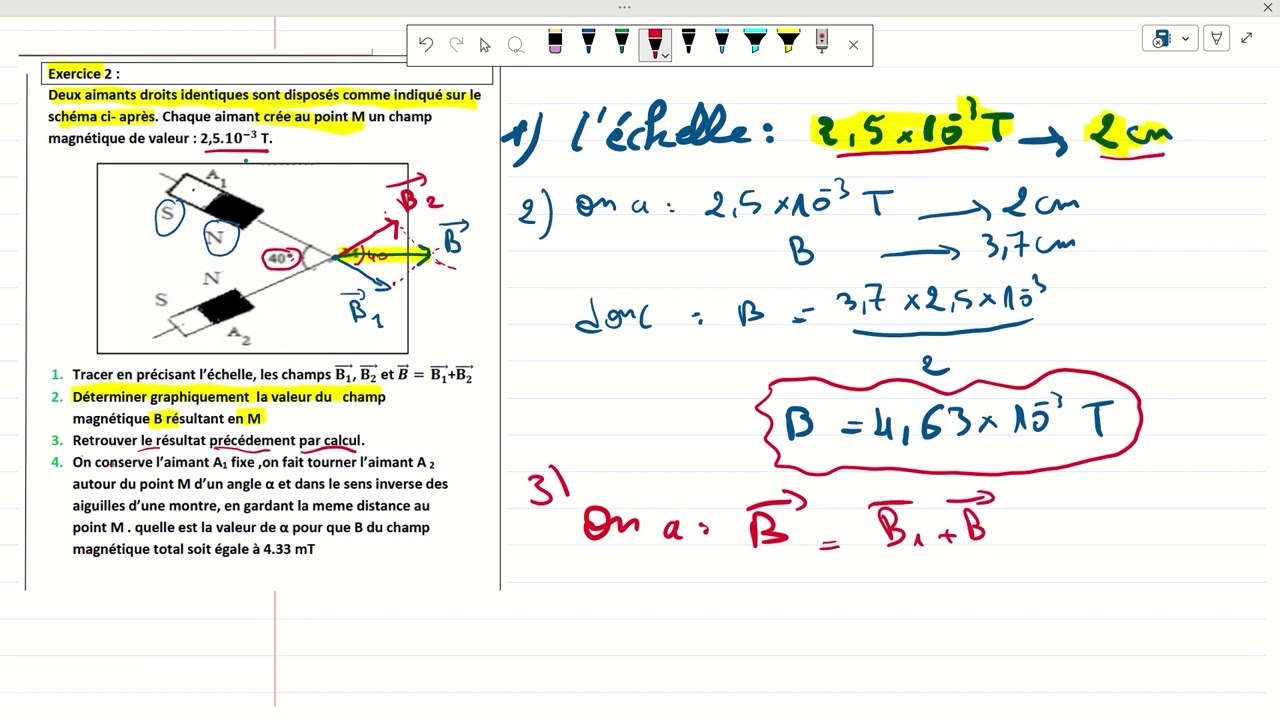 Exercice 2 :
Deux aimants droits identiques sont disposés comme indiqué sur le
schéma ci- après. Chaque aimant crée au point M un champ
magnétique de valeur : 2,5.10⁻³ T.
A₁
S
N
40°
N
S
A₂
B₂
40
B
B₁
1. Tracer en précisant l'échelle, les champs B₁, B₂ et B = B₁+B₂
2. Déterminer graphiquement la valeur du champ
magnétique B résultant en M
3. Retrouver le résultat précédement par calcul.
4. On conserve l'aimant A₁ fixe ,on fait tourner l'aimant A ₂
autour du point M d'un angle α et dans le sens inverse des
aiguilles d'une montre, en gardant la meme distance au
point M . quelle est la valeur de α pour que B du champ
magnétique total soit égale à 4.33 mT
1) l'échelle : 2,5 × 10⁻³ T → 2 cm
2) On a : 2,5 × 10⁻³ T → 2 cm
B → 3,7 cm
donc : B = 3,7 × 2,5 × 10⁻³
2
B = 4,63 × 10⁻³ T
3) On a : B = B₁ + B